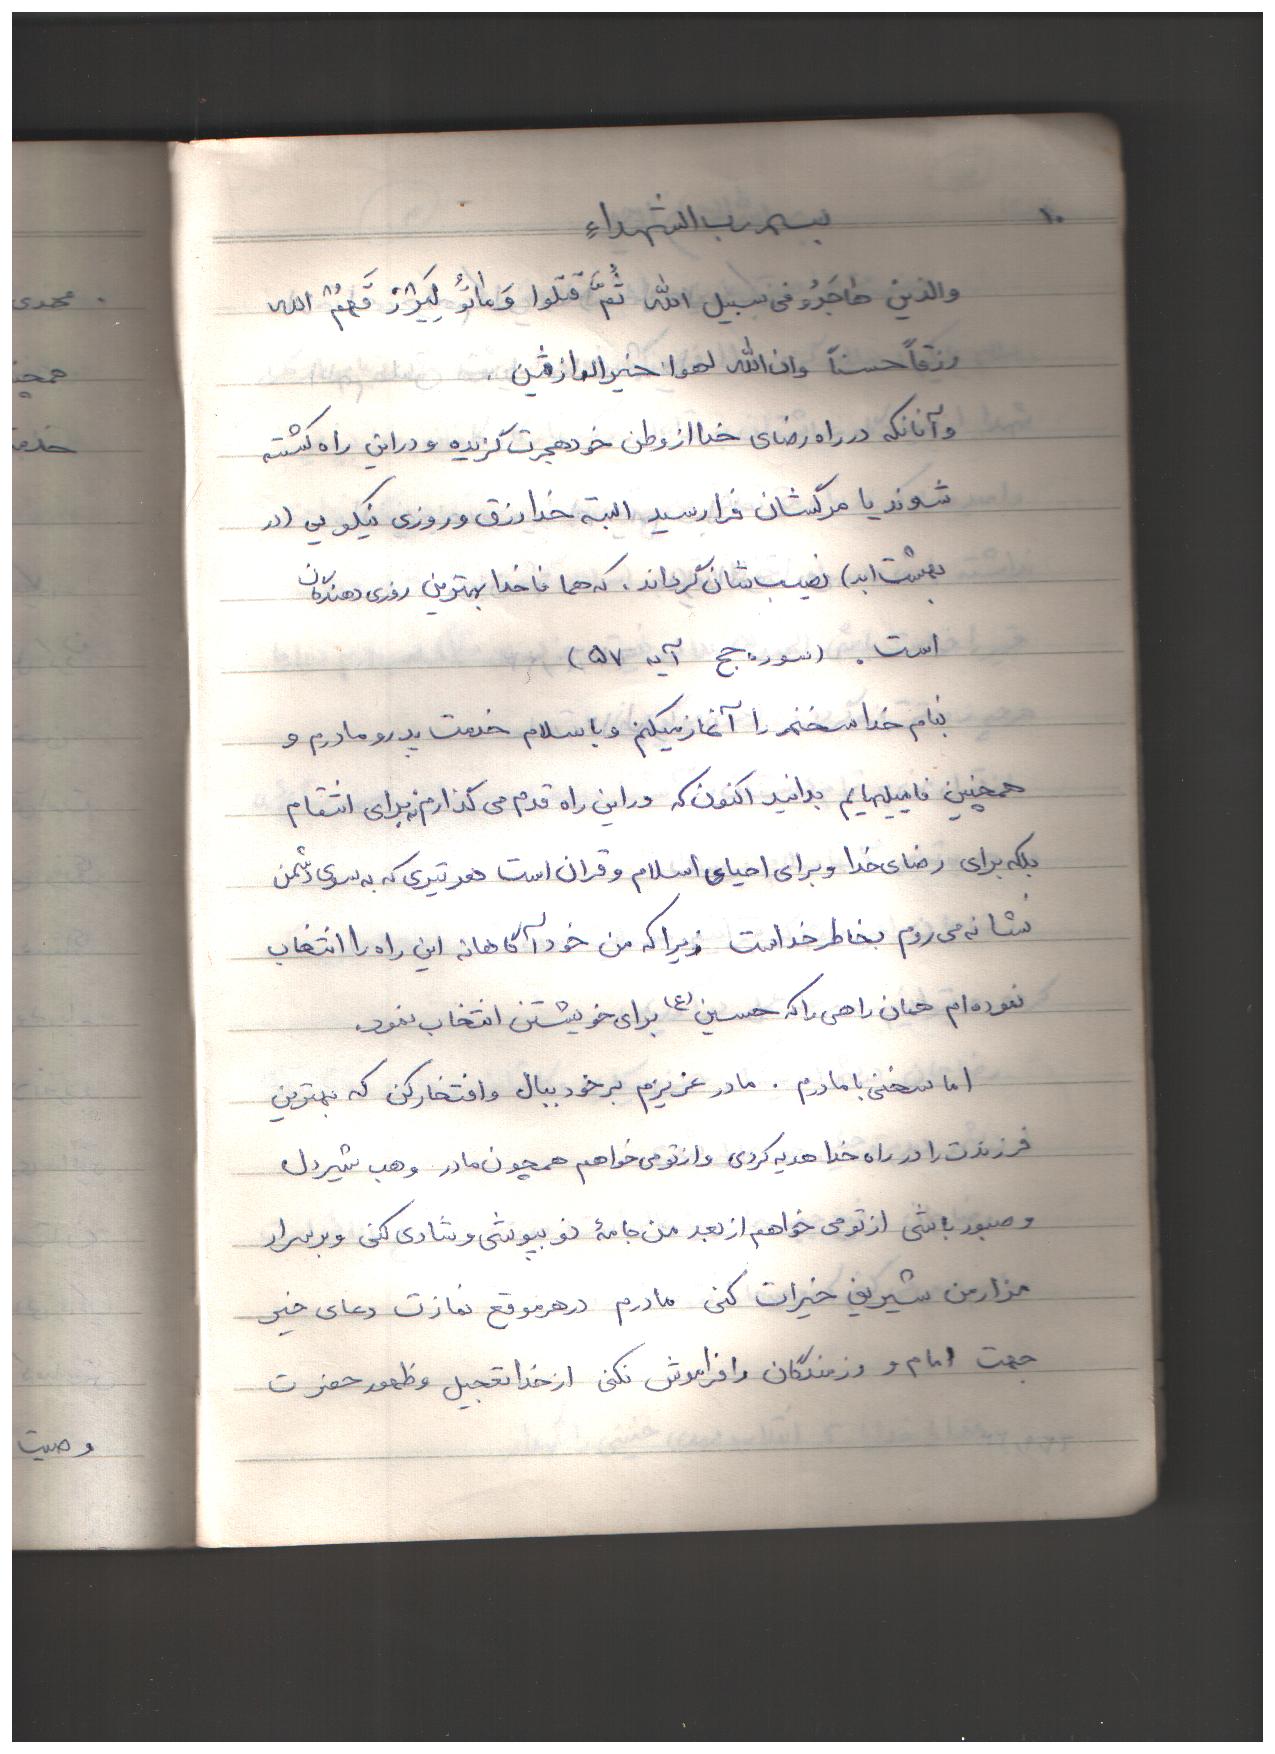 ۱۰
بسم رب الشهداءِ
والذین هاجَرُو فی سبیل الله ثُمَّ قتلوا وَماتوُ لِیَرْزُقَهُمُ الله
رزقاً حسناً وان الله لهوا خیرالرازقین .
و آنانکه در راه رضای خدا از وطن خود هجرت گزیده و در این راه کشته
شوند یا مرگشان فرا رسید البته خدا رزق و روزی نیکویی (در
بهشت ابد) نصیب شان گرداند . که همانا خدا بهترین روزی دهندگان
است . (سوره حج آیه ۵۷)
بنام خدا سخنم را آغاز میکنم و با سلام خدمت پدر و مادرم و
همچنین فامیلهایم بدانید اکنون که در این راه قدم می گذارم نه برای انتقام
بلکه برای رضای خدا و برای احیای اسلام و قران است هر تیری که به سوی دشمن
نشانه می روم بخاطر خداست زیرا که من خود آگاهانه این راه را انتخاب
نموده ام همان راهی را که حسین (ع) برای خویشتن انتخاب نمود.
اما سخنی با مادرم . مادر عزیزم بر خود ببال و افتخار کن که بهترین
فرزندت را در راه خدا هدیه کردی و از تو می خواهم همچون مادر وهب شیردل
و صبور باشی از تو می خواهم از بعد من جامهٔ نو بپوشی و شادی کنی و بر سر
مزار من شیرینی خیرات کنی مادرم در هر موقع نمازت دعای خیر
جهت امام و رزمندگان را فراموش نکنی از خدا تعجیل و ظهور حضرت
. محمدی
همچن
خدمت
وصیت